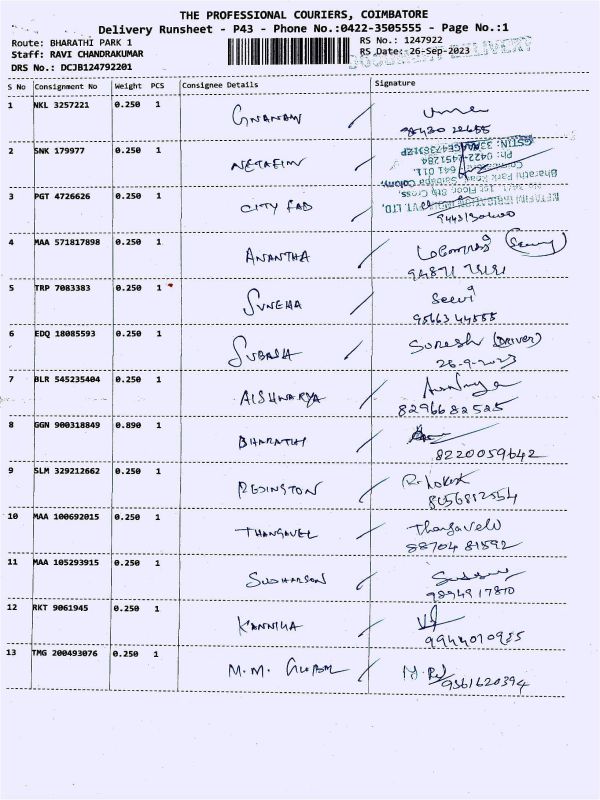 THE PROFESSIONAL COURIERS, COIMBATORE
Delivery Runsheet - P43 - Phone No.:0422-3505555 - Page No.:1
Route: BHARATHI PARK 1
RS No.: 1247922
Staff: RAVI CHANDRAKUMAR
RS Date: 26-Sep-2023
DRS No.: DCJB124792201
S No Consignment No Weight PCS Consignee Details Signature
1 NKL 3257221 0.250 1 GNANAM
2 SNK 179977 0.250 1 NETAFIM
3 PGT 4726626 0.250 1 CITY FAD
4 MAA 571817898 0.250 1 ANANTHA
5 TRP 7083383 0.250 1 SUNEHA
6 EDQ 18085593 0.250 1 SUBASH SURESH (DRIVER)
26-9-2023
7 BLR 545235404 0.250 1 AISHWARYA
8296682525
8 GGN 900318849 0.890 1 BHARATHI
8220059642
9 SLM 329212662 0.250 1 REDINGTON
8056812554
10 MAA 100692015 0.250 1 THANGAVEL Thangavelu
88704 81592
11 MAA 105293915 0.250 1 SUDHARSON
9894917870
12 RKT 9061945 0.250 1 KANNIKA
9944010985
13 TMG 200493076 0.250 1 M.M. GLOBAL
9361620394